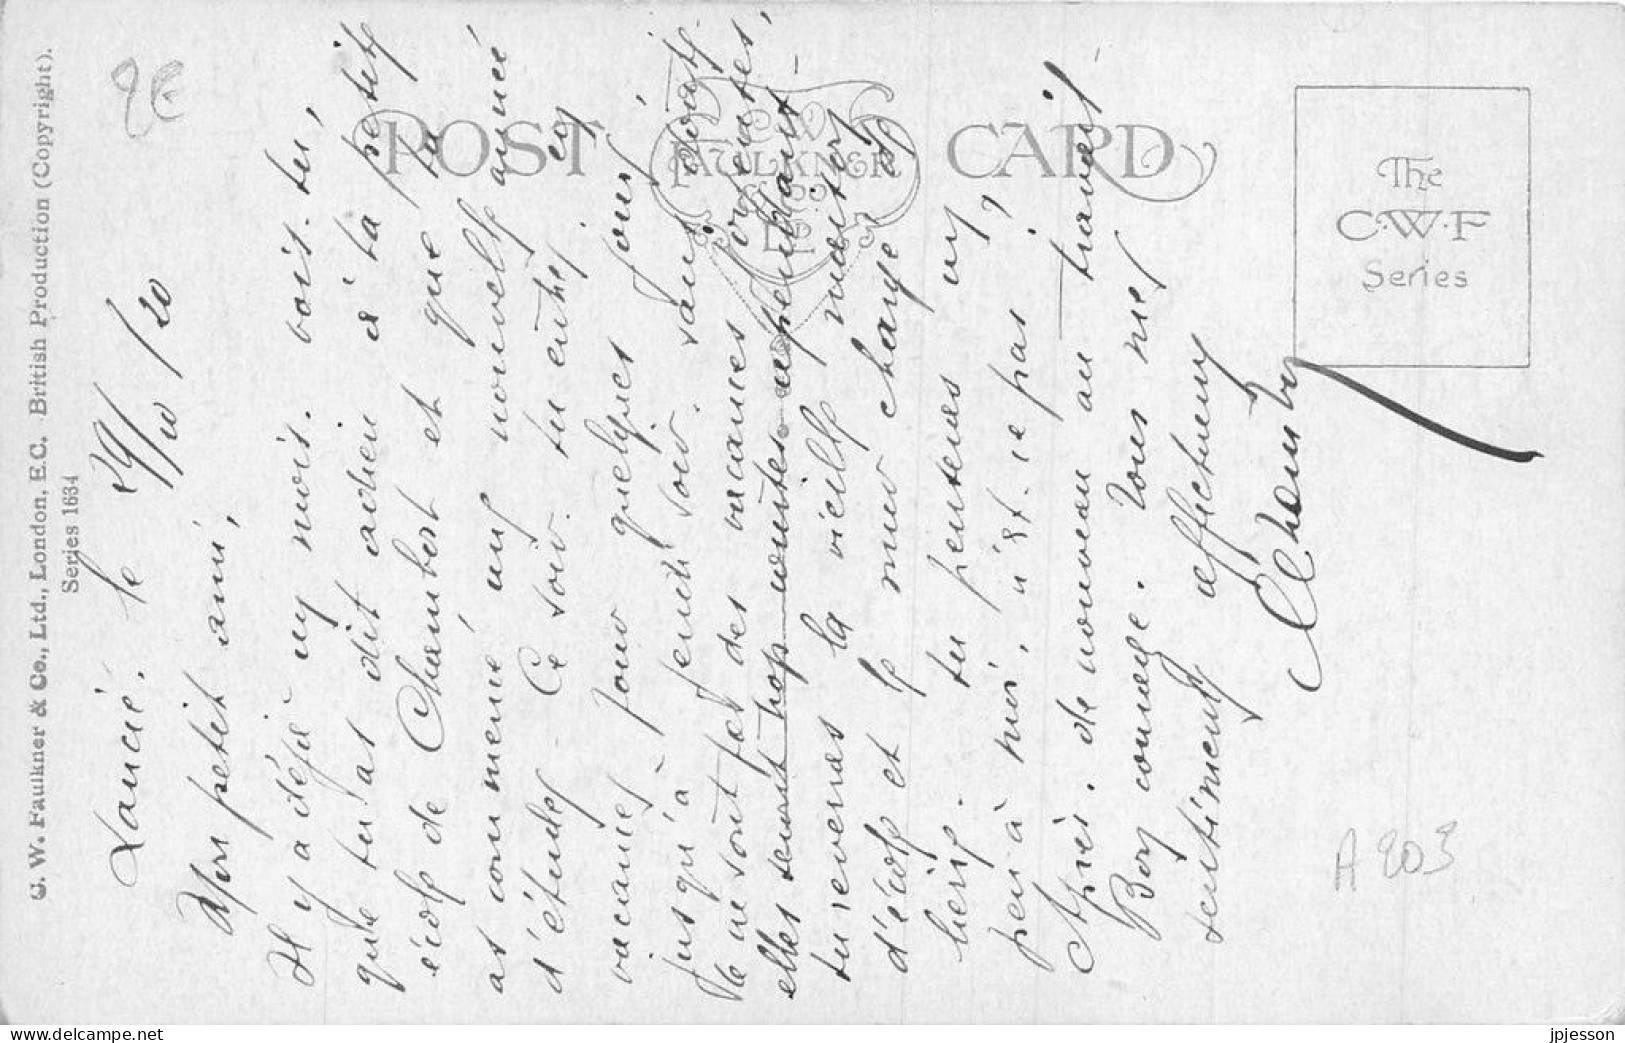 G. W. Faulkner & Co., Ltd., London, E.C. British Production (Copyright).
Series 1634
POST CARD
C.W.
FAULKNER
& Co
The
C.W.F
Series
2E
Lancié. le 29/10/20
Mon petit ami,
Il y a déjà un mois. vois-tu,
que tu as dit adieu à ta petite
école de Chambost et que tu
as commencé une nouvelle année
d'études. Ce soir tu entres en
vacances pour quelques jours
jusqu'à jeudi soir. sans doute
Ce ne sont pas des vacances
elles seront trop courtes cependant
tu reverras la vieille maison
d'école et le mur change de
lierre. tu penseras un
peu à moi, n'est-ce pas ?
Après, de nouveau au travail
Bon courage. Tous mes
sentiments affectueux
A 203
jpjesson
www.delcampe.net